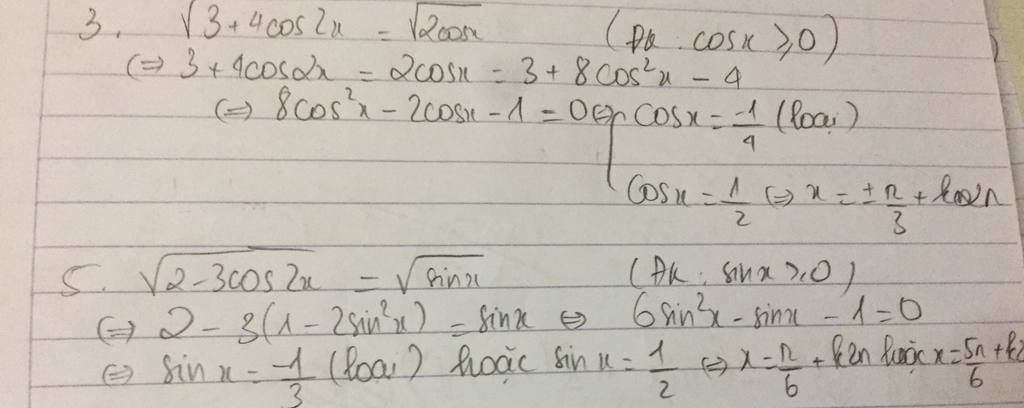 3. √3+4cos2x = √2cosx (ĐK: cosx ≥ 0)
(=) 3+4cos2x = 2cosx = 3 + 8cos²x - 4
(=) 8cos²x - 2cosx - 1 = 0 (=) cosx = -1/4 (loại)
cosx = 1/2 (=) x = ±π/3 + k2π
5. √2-3cos2x = √sinx (ĐK: sinx ≥ 0)
(=) 2 - 3(1-2sin²x) = sinx (=) 6sin²x - sinx - 1 = 0
(=) sinx = -1/3 (loại) hoặc sinx = 1/2 (=) x = π/6 + k2π hoặc x = 5π/6 + k2